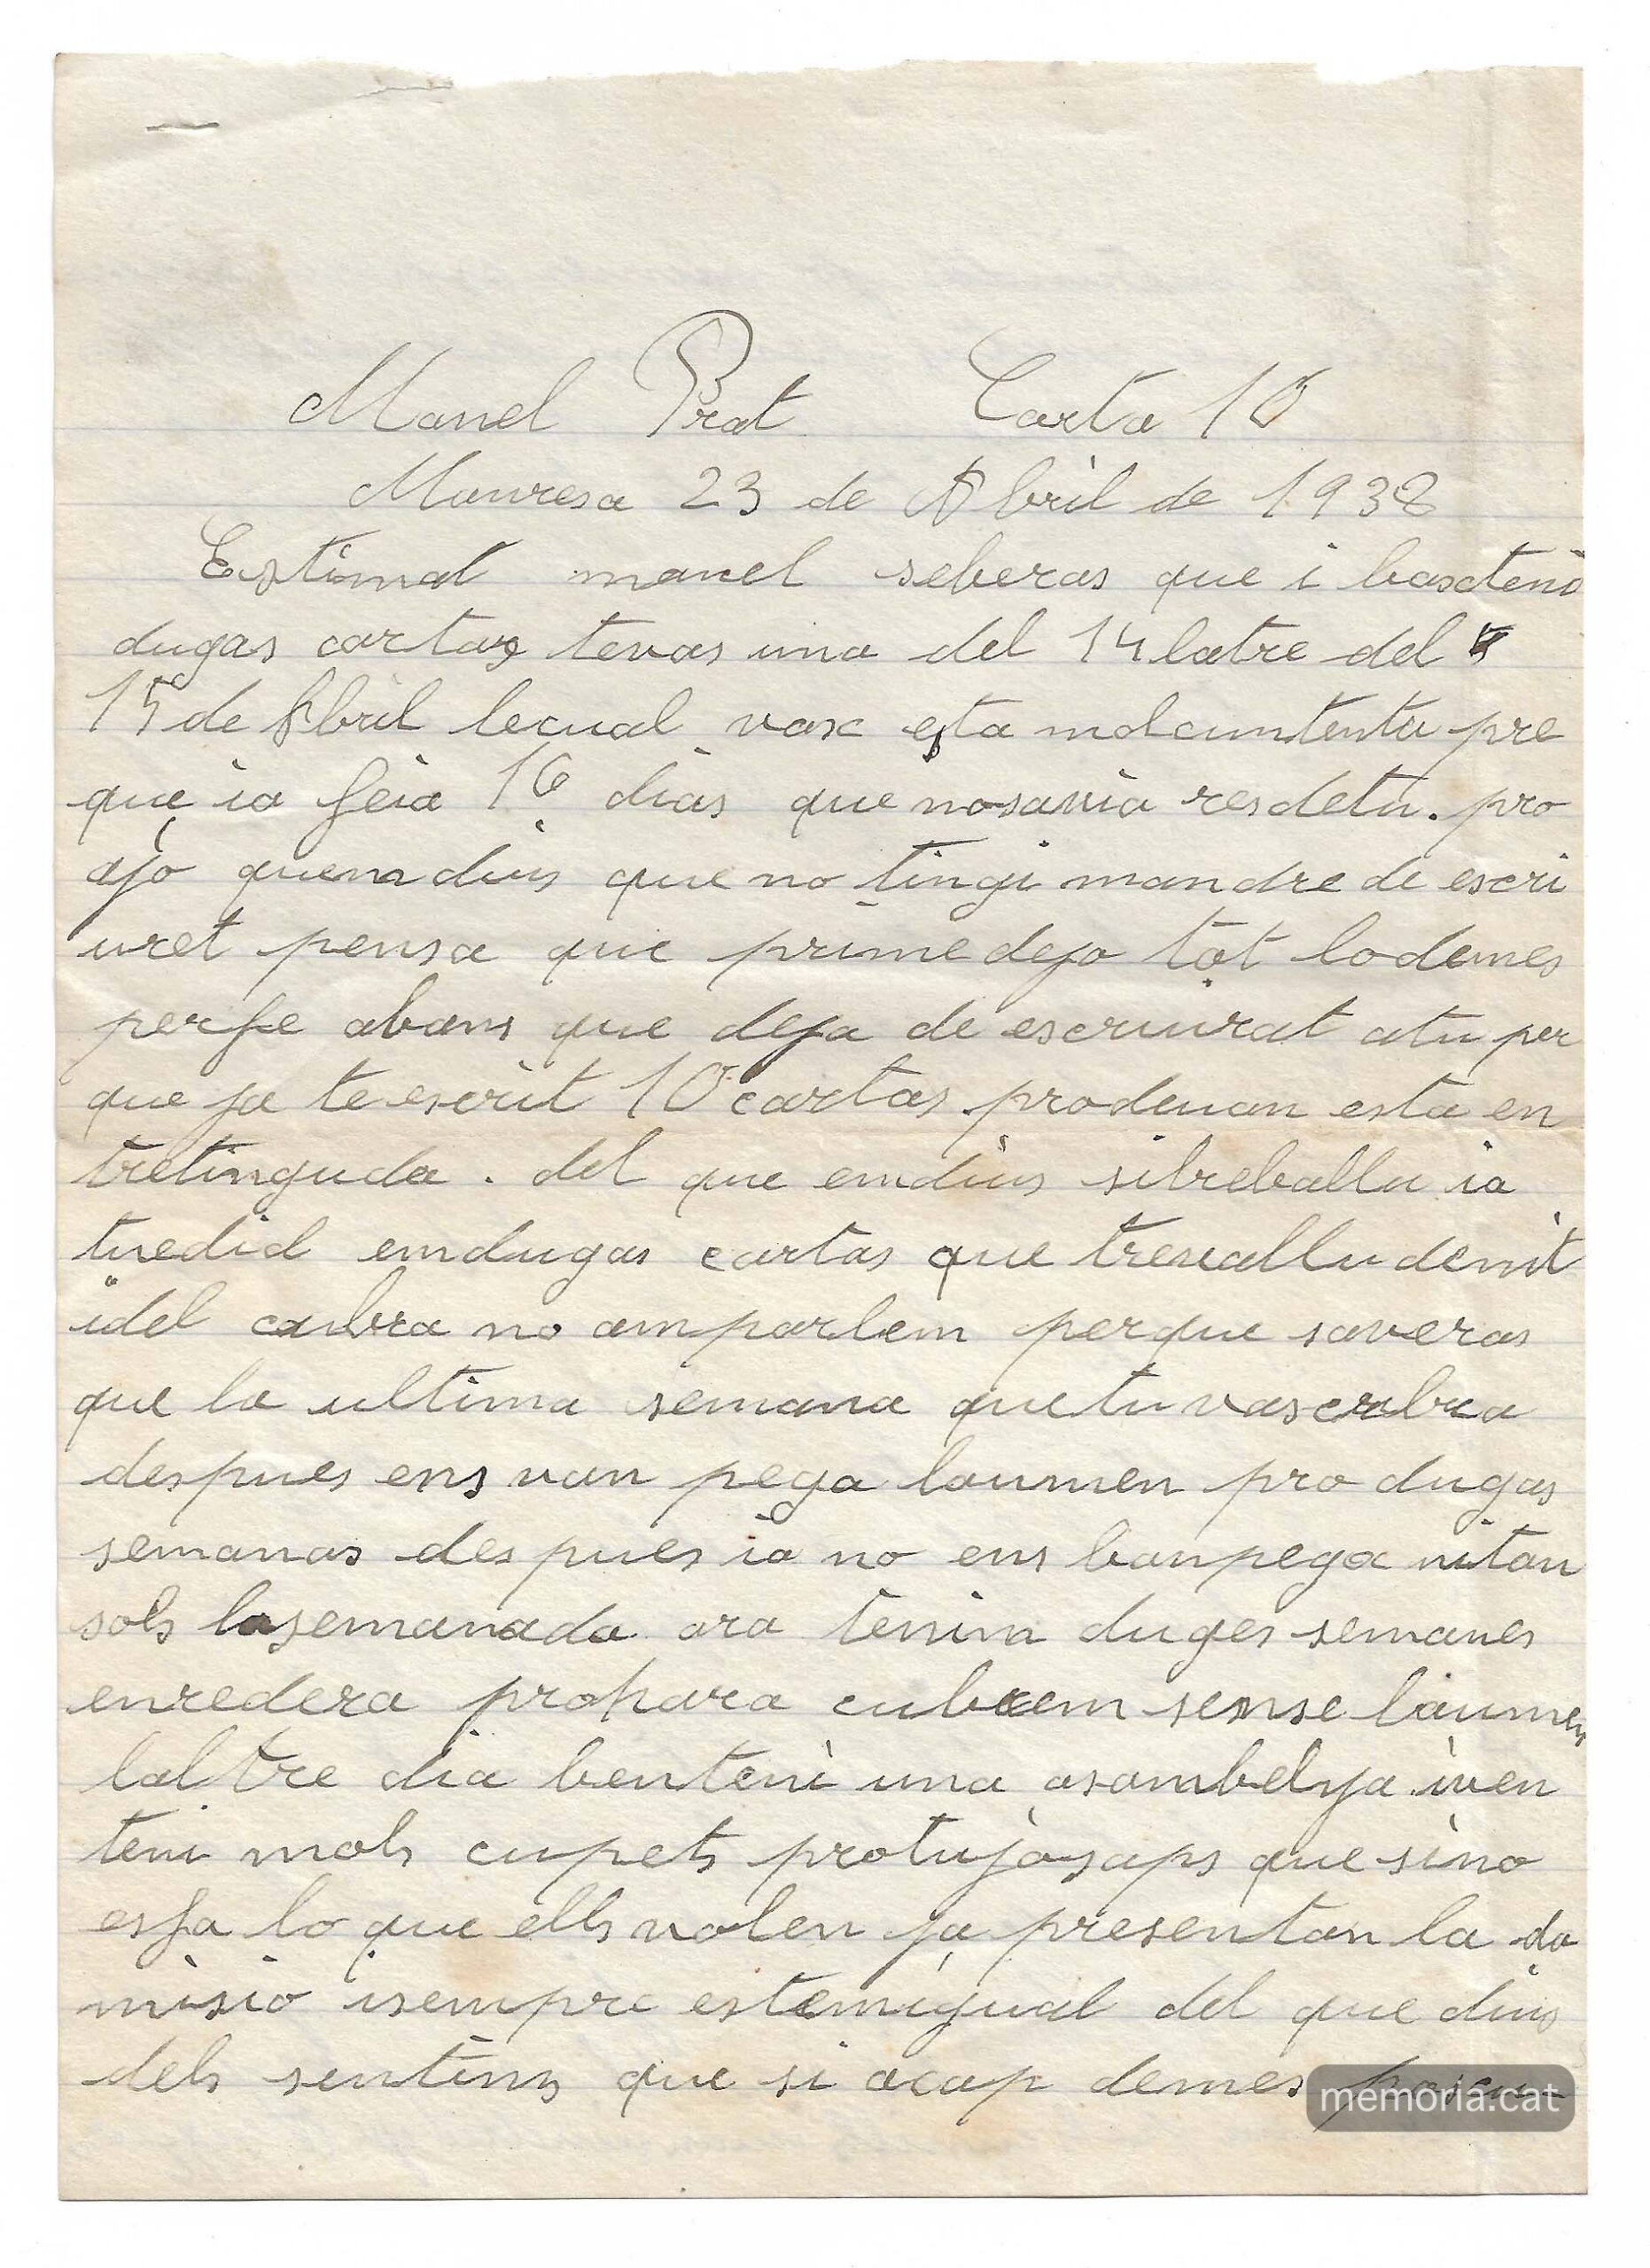 Manel Prat Carta 10
Manresa 23 de Abril de 1938
Estimat manel seberas que i basc teni
dugas cartas tevas una del 14 latre del
15 de Abril lecual vasc esta molcuntentu pre
que ia feia 16 dias que nosavia resdetu. pro
ajo quem dius que no tingi mandre de escri
uret pensa que prime dejo tot lodemes
perfe abans que deja de escriurat atu per
que ja te escrit 10 cartas produuan esta en
tretinguda. del que emdius sitreballu ia
tuedid emdugas cartas que trevallu denit
idel cubra no amparlem perque saveras
que la ultima semana quetu vascubra
despues ens van pega laumen pro dugas
semanas despues ia no ens banpega nitan
sols lasemanada ara tenim duges semanes
enredera prohara cubrem sense laumen
laltre dia benteni una asambelya iven
teni mols cupets protujasaps que sino
esfa lo que ells volen ja presentan la do
misio isempre estemigual del que dius
dels sentims que si acap demes
memoria.cat